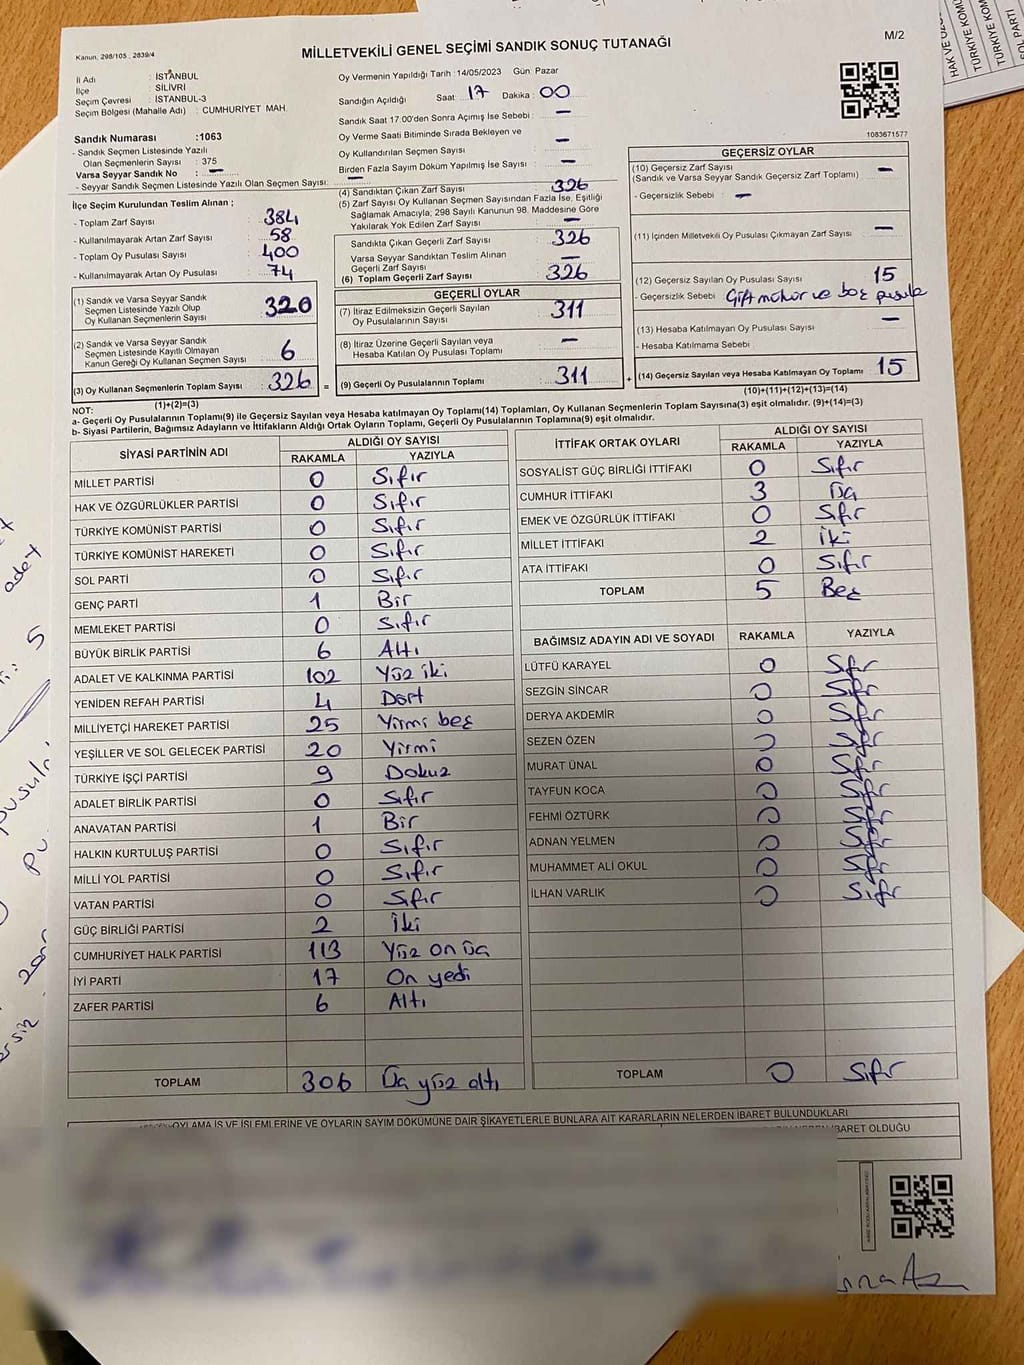 Kanun, 298/105 , 2839/4
MİLLETVEKİLİ GENEL SEÇİMİ SANDIK SONUÇ TUTANAĞI
M/2
İl Adı : İSTANBUL
İlçe : SİLİVRİ
Seçim Çevresi : İSTANBUL-3
Seçim Bölgesi (Mahalle Adı) : CUMHURİYET MAH.
Sandık Numarası :1063
- Sandık Seçmen Listesinde Yazılı
Olan Seçmenlerin Sayısı : 375
Varsa Seyyar Sandık No : —
- Seyyar Sandık Seçmen Listesinde Yazılı Olan Seçmen Sayısı: —
Oy Vermenin Yapıldığı Tarih :14/05/2023 Gün: Pazar
Sandığın Açıldığı Saat : 17 Dakika : 00
Sandık Saat 17:00'den Sonra Açımış İse Sebebi : —
Oy Verme Saati Bitiminde Sırada Bekleyen ve
Oy Kullandırılan Seçmen Sayısı : —
Birden Fazla Sayım Döküm Yapılmış İse Sayısı : —
1083671577
İlçe Seçim Kurulundan Teslim Alınan ;
- Toplam Zarf Sayısı : 384
- Kullanılmayarak Artan Zarf Sayısı : 58
- Toplam Oy Pusulası Sayısı : 400
- Kullanılmayarak Artan Oy Pusulası : 74
(1) Sandık ve Varsa Seyyar Sandık
Seçmen Listesinde Yazılı Olup
Oy Kullanan Seçmenlerin Sayısı : 320
(2) Sandık ve Varsa Seyyar Sandık
Seçmen Listesinde Kayıtlı Olmayan
Kanun Gereği Oy Kullanan Seçmen Sayısı : 6
(3) Oy Kullanan Seçmenlerin Toplam Sayısı : 326
(1)+(2)=(3)
(4) Sandıktan Çıkan Zarf Sayısı : 326
(5) Zarf Sayısı Oy Kullanan Seçmen Sayısından Fazla İse, Eşitliği
Sağlamak Amacıyla; 298 Sayılı Kanunun 98. Maddesine Göre
Yakılarak Yok Edilen Zarf Sayısı : —
Sandıkta Çıkan Geçerli Zarf Sayısı : 326
Varsa Seyyar Sandıktan Teslim Alınan
Geçerli Zarf Sayısı : —
(6) Toplam Geçerli Zarf Sayısı : 326
GEÇERLİ OYLAR
(7) İtiraz Edilmeksizin Geçerli Sayılan
Oy Pusulalarının Sayısı : 311
(8) İtiraz Üzerine Geçerli Sayılan veya
Hesaba Katılan Oy Pusulası Toplamı : —
= (9) Geçerli Oy Pusulalarının Toplamı : 311
GEÇERSİZ OYLAR
(10) Geçersiz Zarf Sayısı : —
(Sandık ve Varsa Seyyar Sandık Geçersiz Zarf Toplamı)
- Geçersizlik Sebebi : —
(11) İçinden Milletvekili Oy Pusulası Çıkmayan Zarf Sayısı : —
(12) Geçersiz Sayılan Oy Pusulası Sayısı : 15
- Geçersizlik Sebebi : Çift mühür ve boş pusula
(13) Hesaba Katılmayan Oy Pusulası Sayısı : —
- Hesaba Katılmama Sebebi :
+ (14) Geçersiz Sayılan veya Hesaba Katılmayan Oy Toplamı : 15
(10)+(11)+(12)+(13)=(14)
NOT:
a- Geçerli Oy Pusulalarının Toplamı(9) ile Geçersiz Sayılan veya Hesaba katılmayan Oy Toplamı(14) Toplamları, Oy Kullanan Seçmenlerin Toplam Sayısına(3) eşit olmalıdır. (9)+(14)=(3)
b- Siyasi Partilerin, Bağımsız Adayların ve İttifakların Aldığı Ortak Oyların Toplamı, Geçerli Oy Pusulalarının Toplamına(9) eşit olmalıdır.
SİYASİ PARTİNİN ADI ALDIĞI OY SAYISI
RAKAMLA YAZIYLA
MİLLET PARTİSİ 0 Sıfır
HAK VE ÖZGÜRLÜKLER PARTİSİ 0 Sıfır
TÜRKİYE KOMÜNİST PARTİSİ 0 Sıfır
TÜRKİYE KOMÜNİST HAREKETİ 0 Sıfır
SOL PARTİ 0 Sıfır
GENÇ PARTİ 1 Bir
MEMLEKET PARTİSİ 0 Sıfır
BÜYÜK BİRLİK PARTİSİ 6 Altı
ADALET VE KALKINMA PARTİSİ 102 Yüz iki
YENİDEN REFAH PARTİSİ 4 Dört
MİLLİYETÇİ HAREKET PARTİSİ 25 Yirmi beş
YEŞİLLER VE SOL GELECEK PARTİSİ 20 Yirmi
TÜRKİYE İŞÇİ PARTİSİ 9 Dokuz
ADALET BİRLİK PARTİSİ 0 Sıfır
ANAVATAN PARTİSİ 1 Bir
HALKIN KURTULUŞ PARTİSİ 0 Sıfır
MİLLİ YOL PARTİSİ 0 Sıfır
VATAN PARTİSİ 0 Sıfır
GÜÇ BİRLİĞİ PARTİSİ 2 İki
CUMHURİYET HALK PARTİSİ 113 Yüz on üç
İYİ PARTİ 17 On yedi
ZAFER PARTİSİ 6 Altı
TOPLAM 306 Üç yüz altı
İTTİFAK ORTAK OYLARI ALDIĞI OY SAYISI
RAKAMLA YAZIYLA
SOSYALİST GÜÇ BİRLİĞİ İTTİFAKI 0 Sıfır
CUMHUR İTTİFAKI 3 Üç
EMEK VE ÖZGÜRLÜK İTTİFAKI 0 Sıfır
MİLLET İTTİFAKI 2 İki
ATA İTTİFAKI 0 Sıfır
TOPLAM 5 Beş
BAĞIMSIZ ADAYIN ADI VE SOYADI RAKAMLA YAZIYLA
LÜTFÜ KARAYEL 0 Sıfır
SEZGİN SİNCAR 0 Sıfır
DERYA AKDEMİR 0 Sıfır
SEZEN ÖZEN 0 Sıfır
MURAT ÜNAL 0 Sıfır
TAYFUN KOCA 0 Sıfır
FEHMİ ÖZTÜRK 0 Sıfır
ADNAN YELMEN 0 Sıfır
MUHAMMET ALİ OKUL 0 Sıfır
İLHAN VARLIK 0 Sıfır
TOPLAM 0 Sıfır
OYLAMA İŞ VE İŞLEMLERİNE VE OYLARIN SAYIM DÖKÜMÜNE DAİR ŞİKAYETLERLE BUNLARA AİT KARARLARIN NELERDEN İBARET BULUNDUKLARI
İBARET OLDUĞU
HAK VE ÖZG
TÜRKİYE KOMÜ
TÜRKİYE KOM
SOL PARTİ
adet